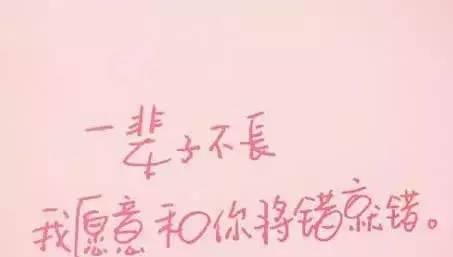 一辈子不長
我愿意和你将错就错。